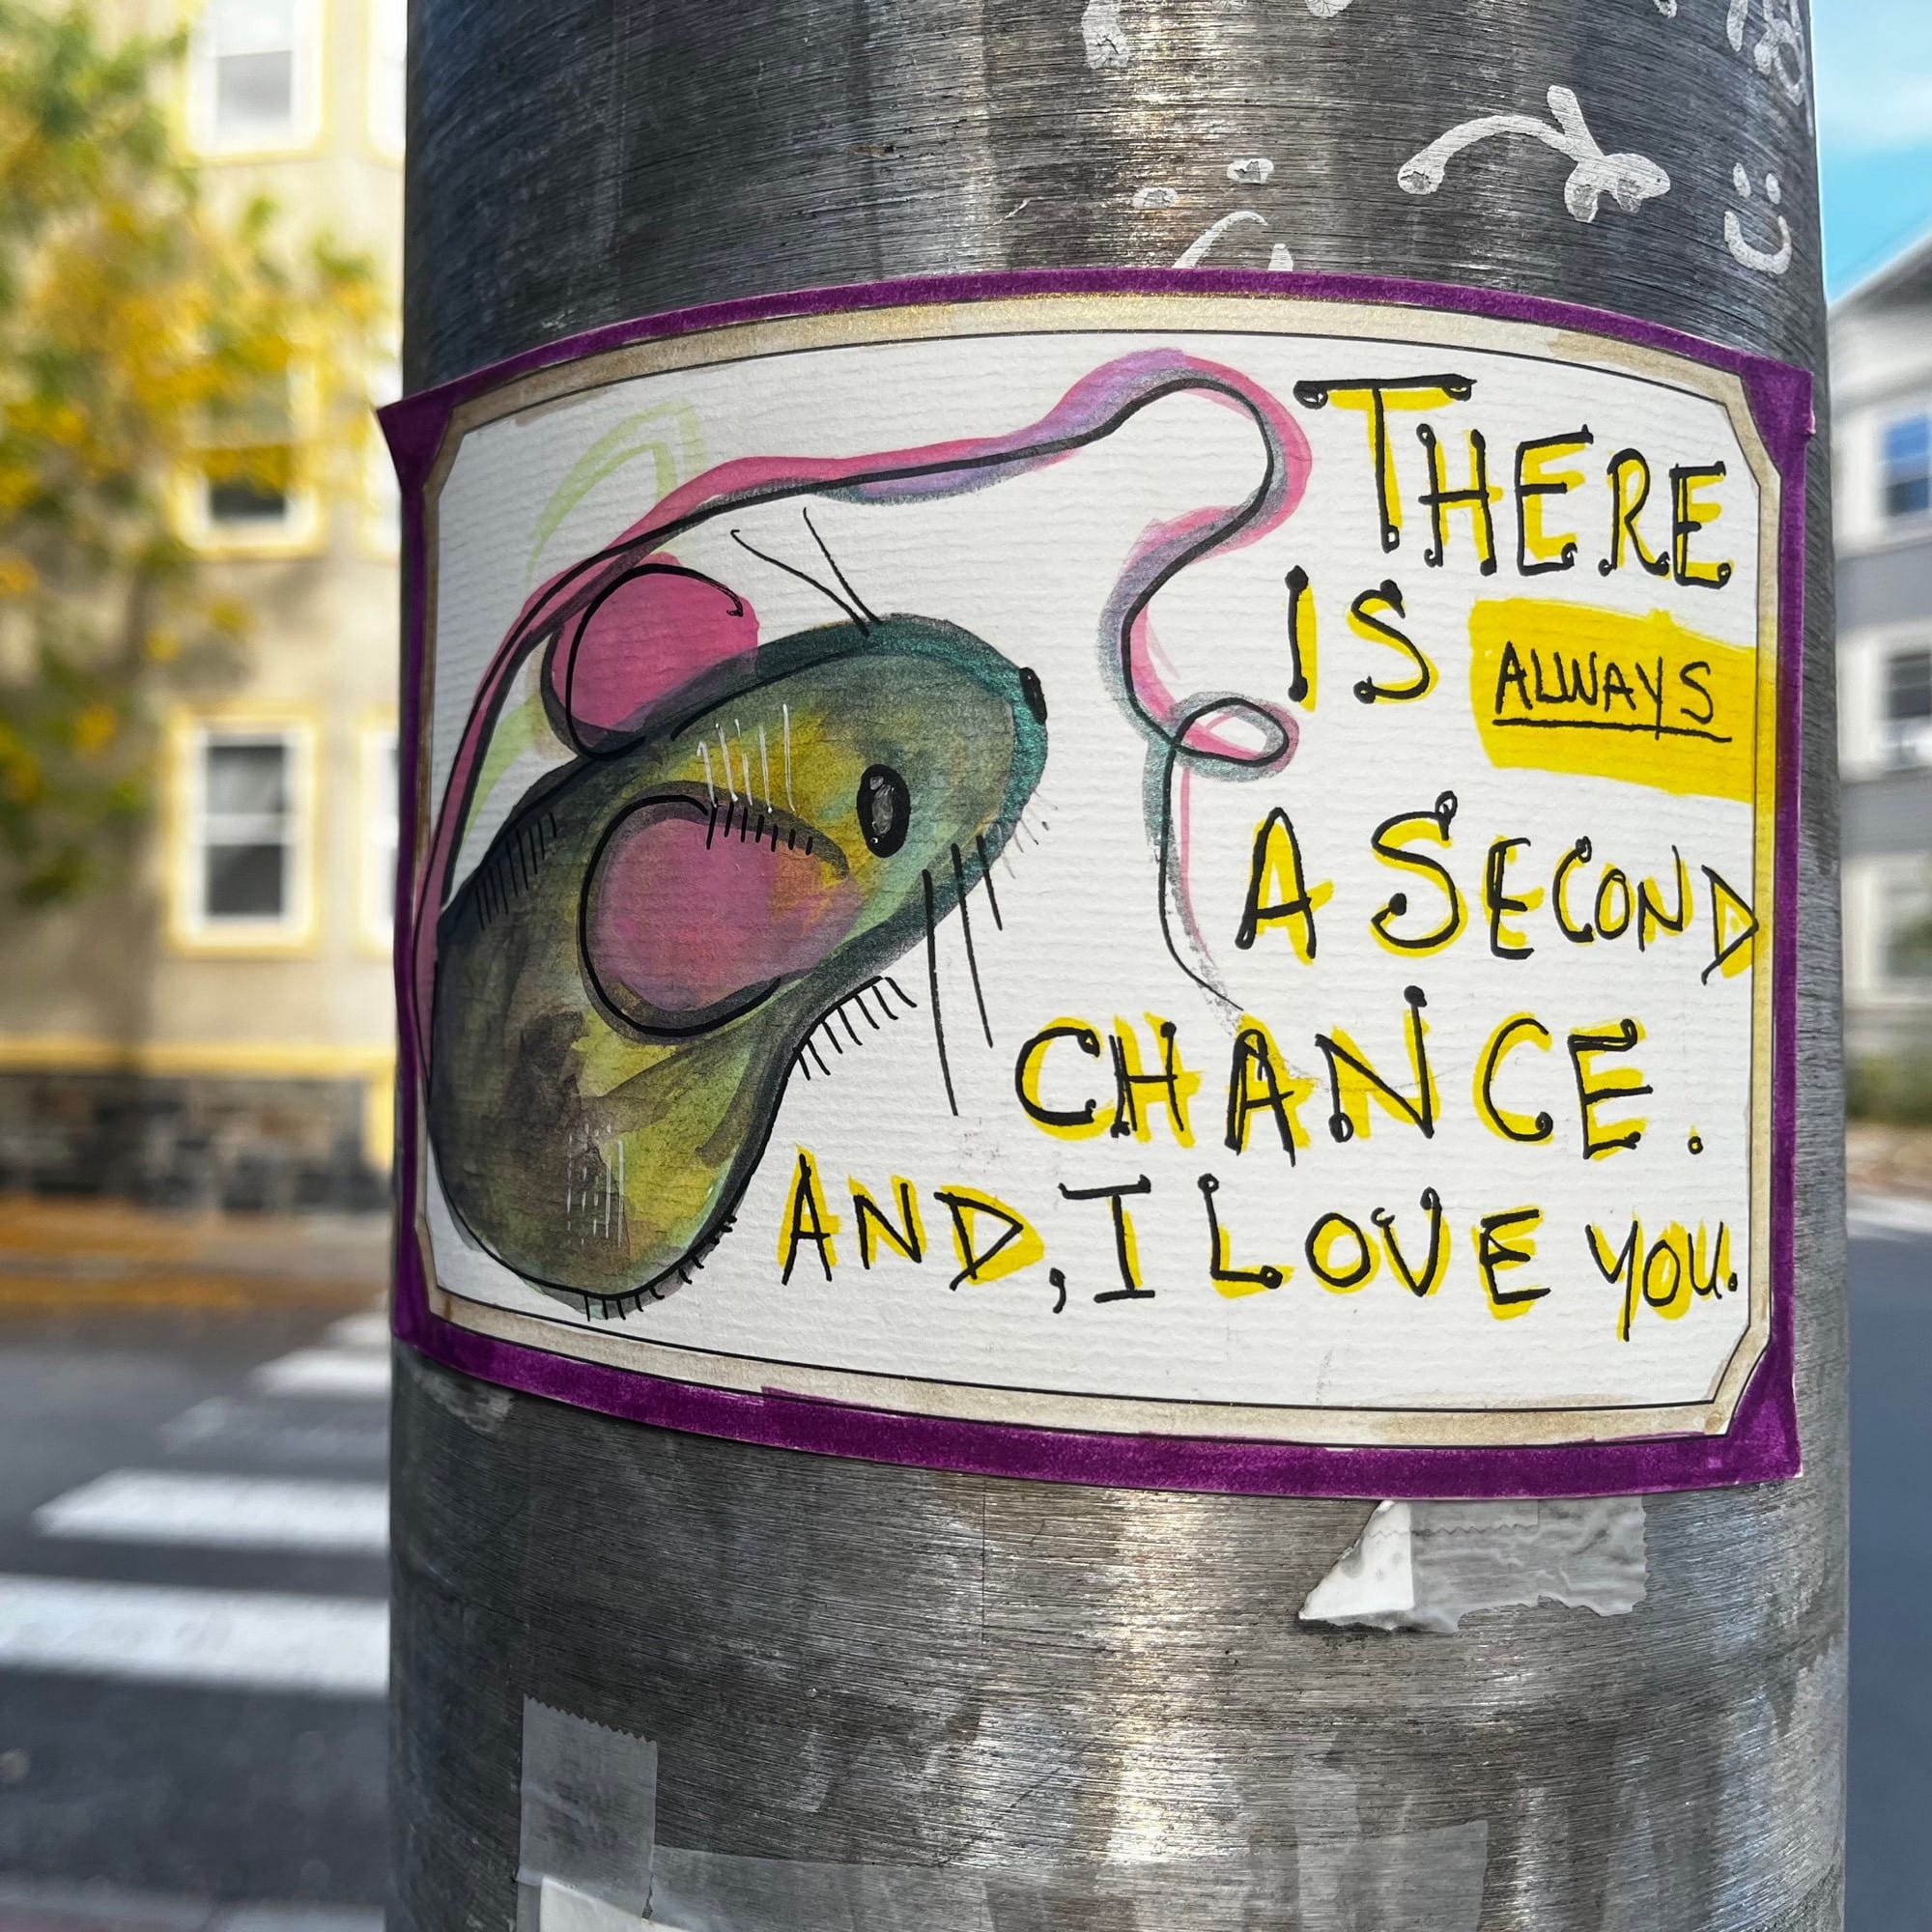 THERE
IS ALWAYS
A SECOND
CHANCE.
AND, I LOVE YOU.